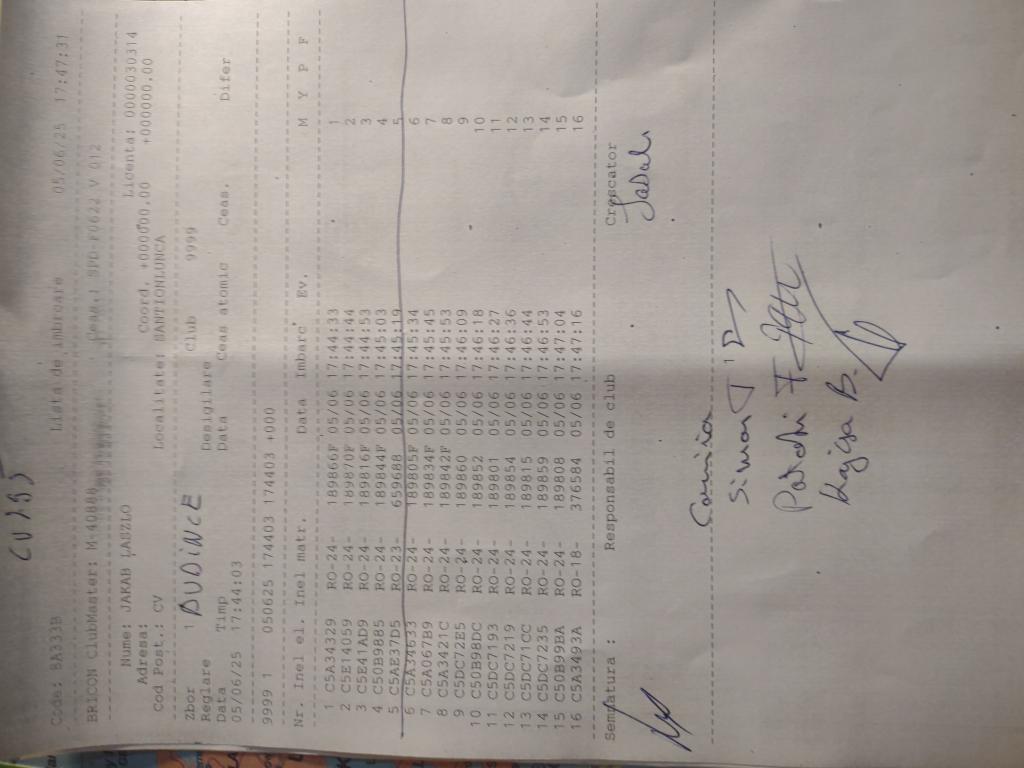 CV 295
Code: BA333B Lista de imbarcare 05/06/25 17:47:31
BRICON ClubMaster: M-40880 V 012
Nume: JAKAB LASZLO Licenta: 0000030314
Adresa: Coord. +000000.00 +000000.00
Cod Post.: CV Localitate: SANTIONLUNCA
Zbor 1 BUDINCE Club 9999
Reglare Desigilare
Data Timp Data Ceas atomic Ceas. Difer
05/06/25 17:44:03
9999 1 050625 174403 174403 +000
Nr. Inel el. Inel matr. Data Imbarc Ev. M Y P F
1 C5A34329 RO-24- 189866F 05/06 17:44:33 1
2 C5E14059 RO-24- 189870F 05/06 17:44:44 2
3 C5E41AD9 RO-24- 189816F 05/06 17:44:53 3
4 C50B9885 RO-24- 189844F 05/06 17:45:03 4
5 C5AE37D5 RO-23- 659688 05/06 17:45:19 5
6 C5A34633 RO-24- 189805F 05/06 17:45:34 6
7 C5A067B9 RO-24- 189834F 05/06 17:45:45 7
8 C5A3421C RO-24- 189842F 05/06 17:45:53 8
9 C5DC72E5 RO-24- 189860 05/06 17:46:09 9
10 C50B98DC RO-24- 189852 05/06 17:46:18 10
11 C5DC7193 RO-24- 189801 05/06 17:46:27 11
12 C5DC7219 RO-24- 189854 05/06 17:46:36 12
13 C5DC71CC RO-24- 189815 05/06 17:46:44 13
14 C5DC7235 RO-24- 189859 05/06 17:46:53 14
15 C50B99BA RO-24- 189808 05/06 17:47:04 15
16 C5A3493A RO-18- 376584 05/06 17:47:16 16
Semnatura : Responsabil de club Crescator
Comisia
Simon